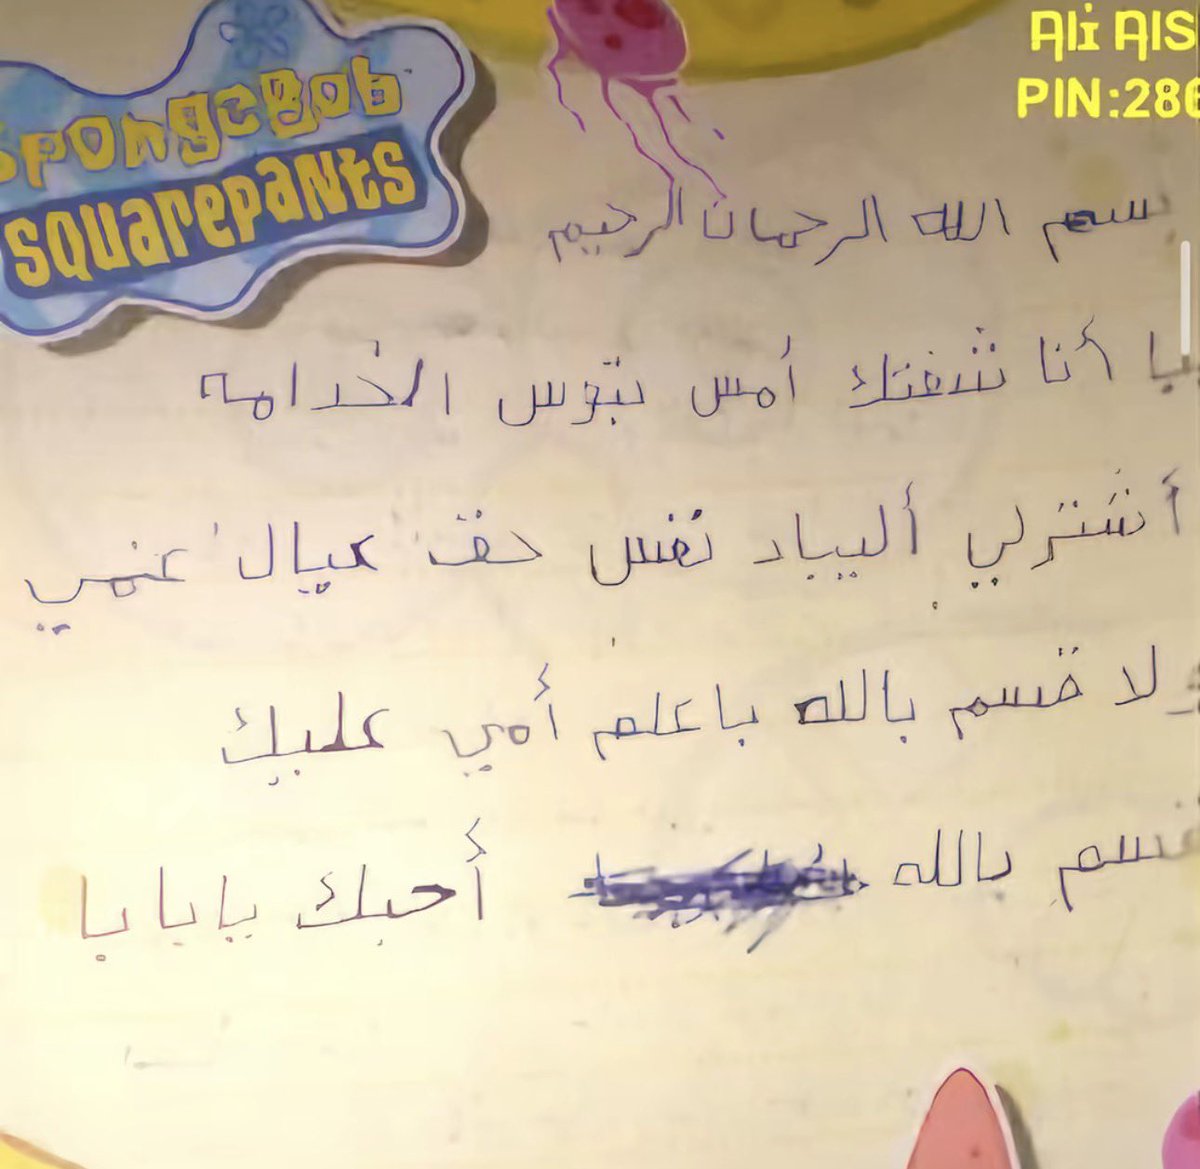 SpongeBob
SQUAREPANTS
Ali AlS
PIN:286
بسم الله الرحمان الرحيم
أنا شفتك أمس تبوس الخدامه
أشترلي أليباد نفس حق عيال عمي
لا قسم بالله باعلم أمي عليك
قسم بالله أحبك يابابا